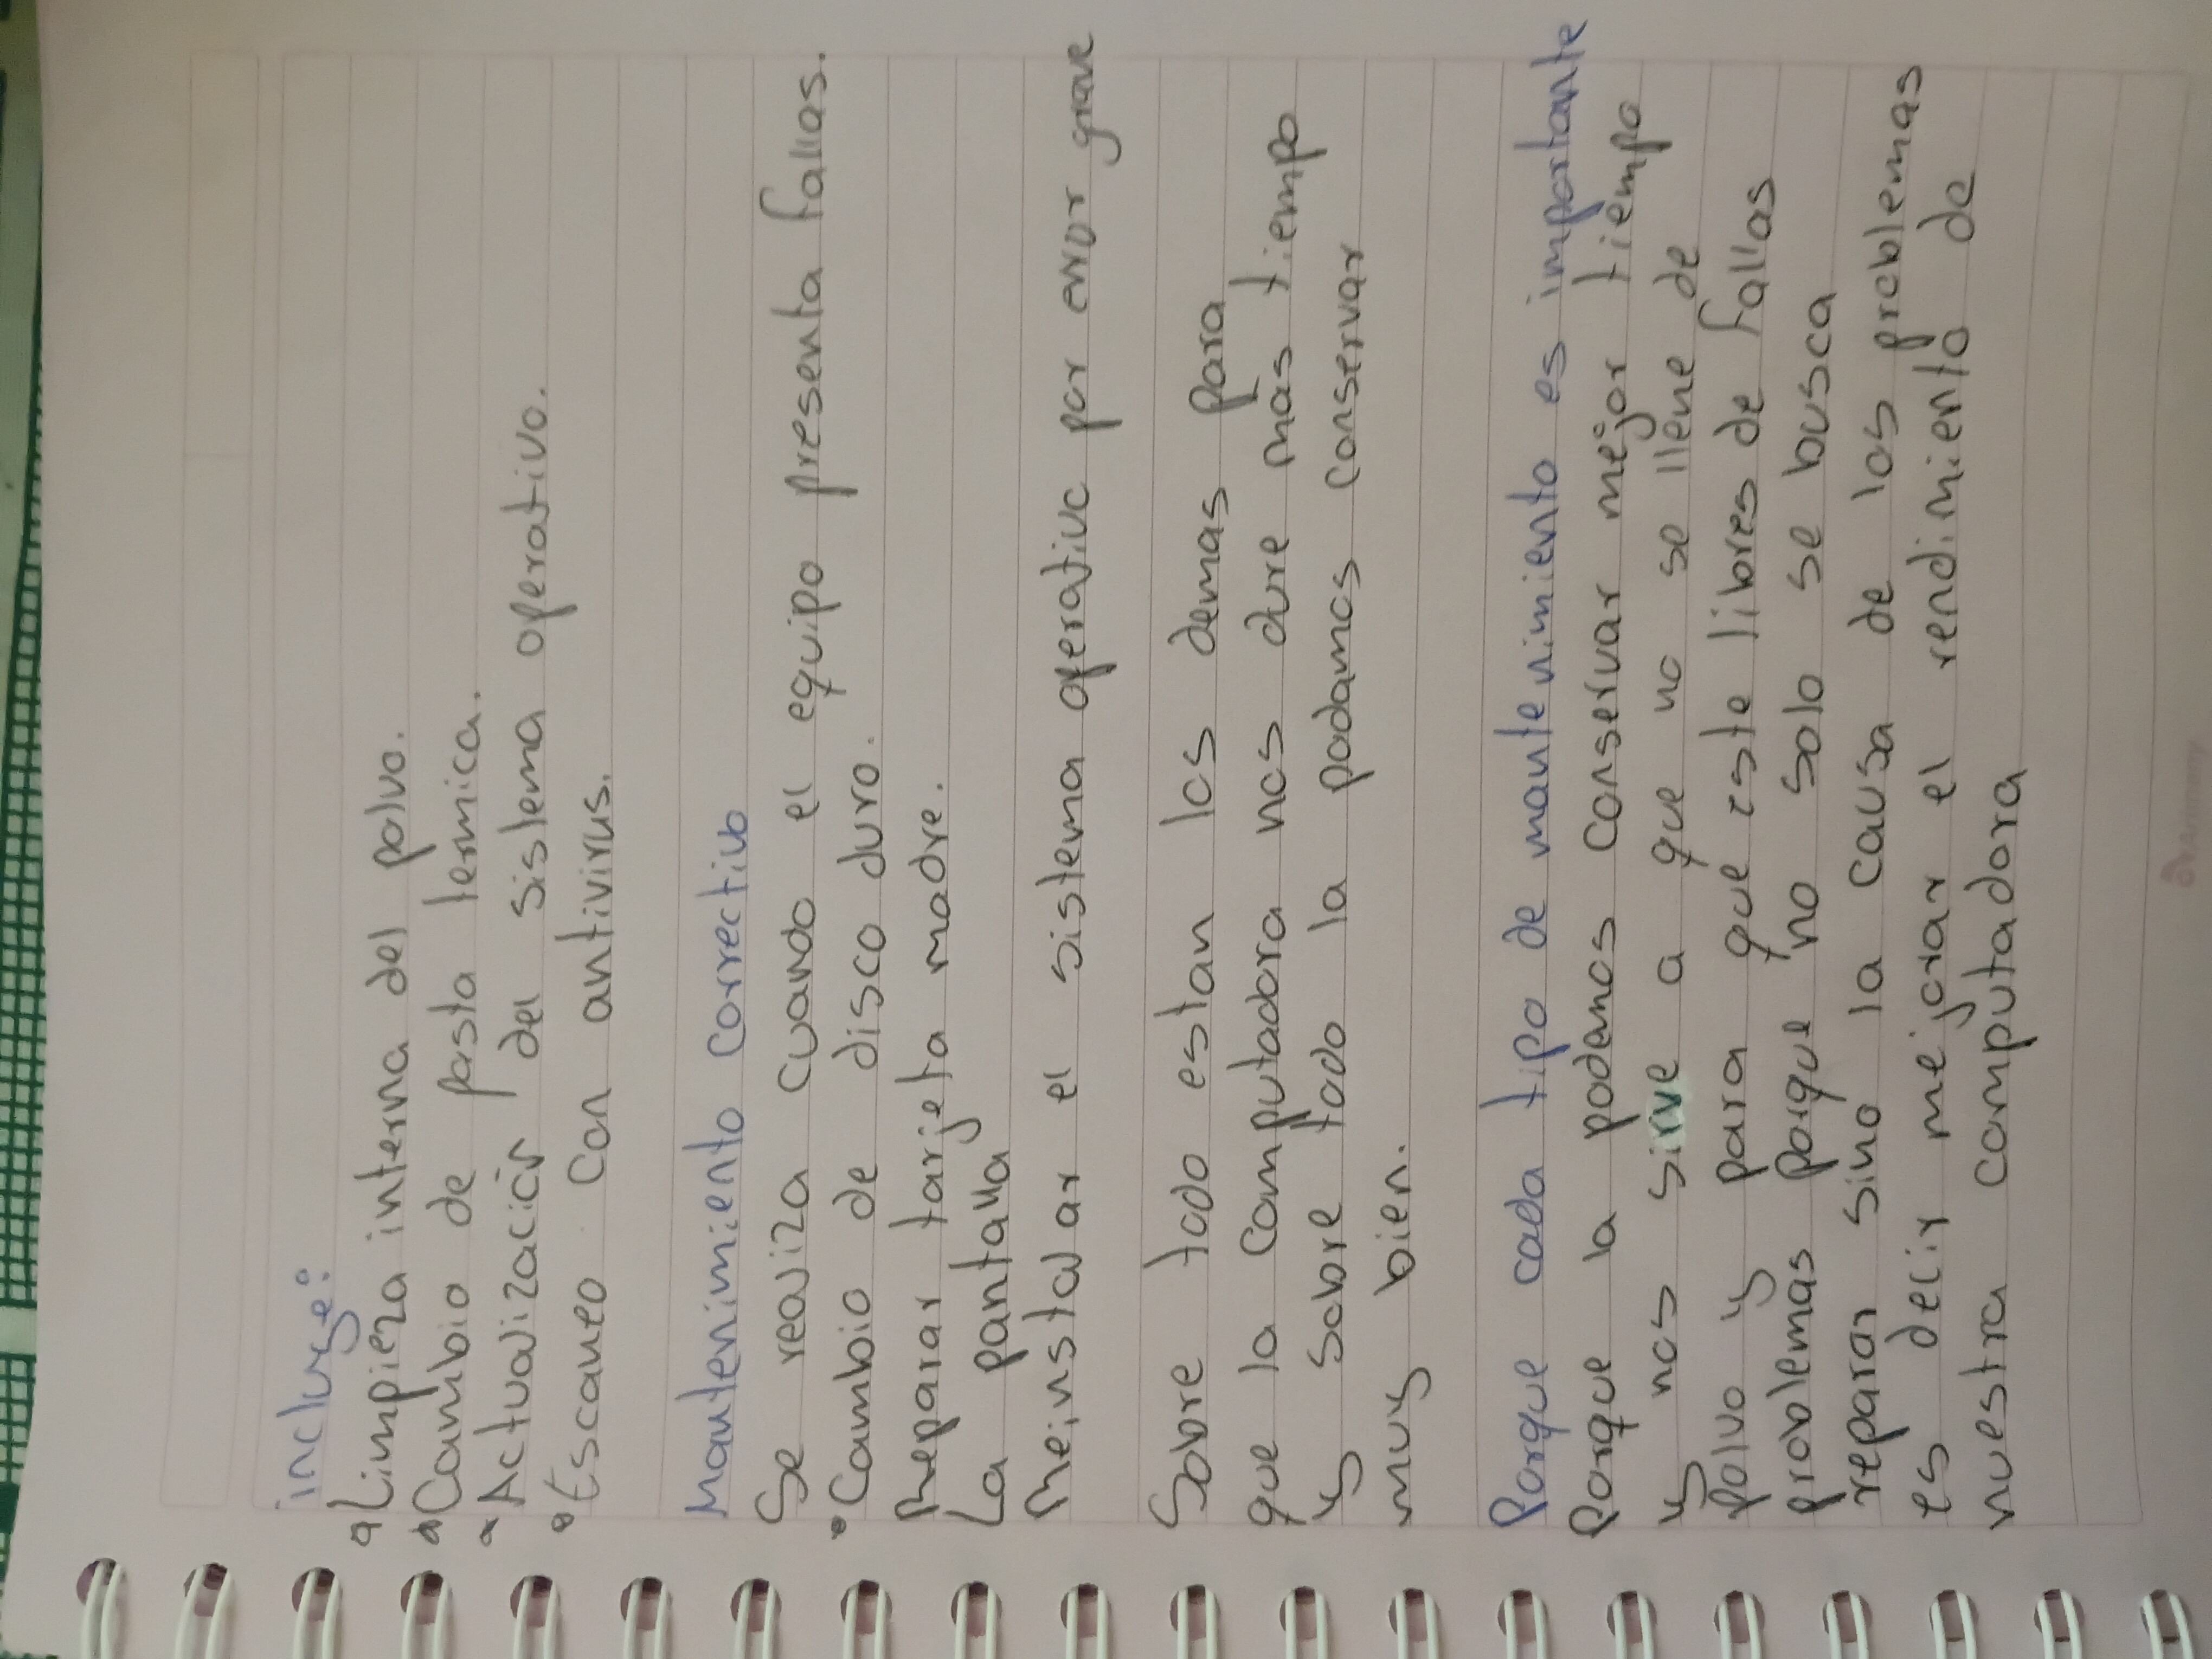 incluye:
Limpieza interna del polvo.
Cambio de pasta termica.
Actualización del sistema operativo.
Escaneo con antivirus.
Mantenimiento correctivo
Se realiza cuando el equipo presenta fallas.
Cambio de disco duro.
Reparar tarjeta madre.
La pantalla
Reinstalar el sistema operativo por error grave
Sobre todo estan los demas para
que la computadora nos dure mas tiempo
y sobre todo la podamos conservar
muy bien.
Porque cada tipo de mantenimiento es importante
Porque la podemos conservar mejor tiempo
y nos sirve a que no se llene de
Polvo y para que este libres de fallas
problemas porque no solo se busca
reparar sino la causa de los problemas
es decir mejorar el rendimiento de
nuestra computadora